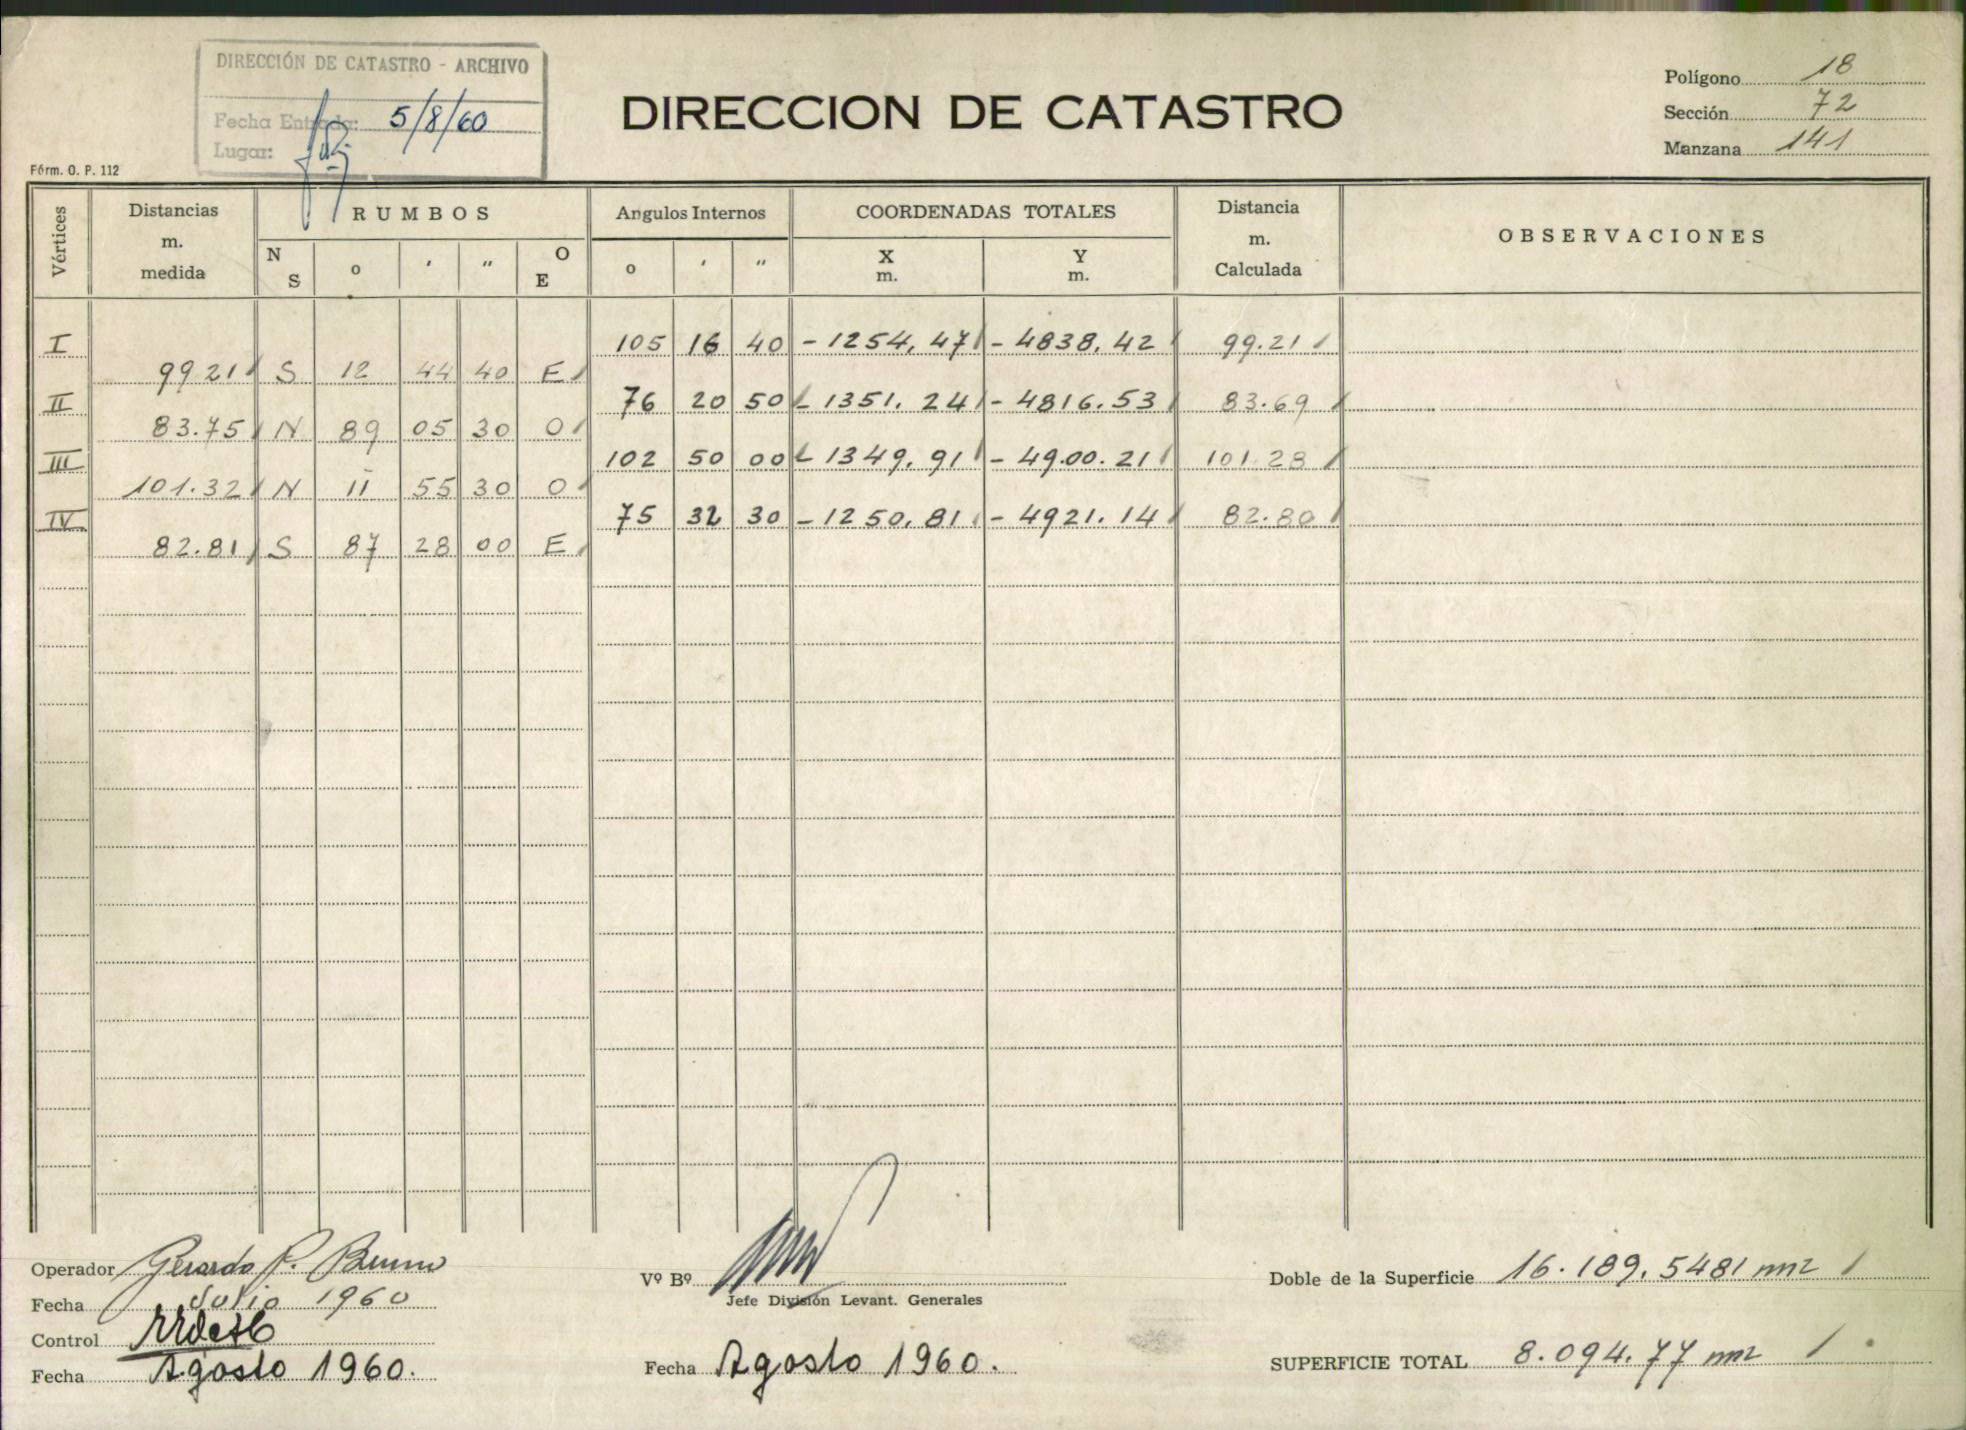 DIRECCIÓN DE CATASTRO - ARCHIVO
Fecha Entrada: 5/8/60
Lugar:
DIRECCION DE CATASTRO
Polígono 18
Sección 72
Manzana 141
Fórm. O. P. 112
Vértices Distancias m. medida RUMBOS Angulos Internos COORDENADAS TOTALES Distancia m. Calculada OBSERVACIONES
N S o ' " O E o ' " X m. Y m.
I 105 16 40 - 1254,47 - 4838.42 99.21
99 21 S 12 44 40 E
II 76 20 50 - 1351.24 - 4816.53 83.69
83.75 N 89 05 30 O
III 102 50 00 - 1349.91 - 49.00.21 101.28
101.32 N 11 55 30 O
IV 75 32 30 - 1250.81 - 4921.14 82.80
82.81 S 87 28 00 E
Operador Gerardo P. Bruno
Fecha Julio 1960
Control
Fecha Agosto 1960.
Vº Bº
Jefe División Levant. Generales
Fecha Agosto 1960.
Doble de la Superficie 16.189,5481 m2
SUPERFICIE TOTAL 8.094.77 m2